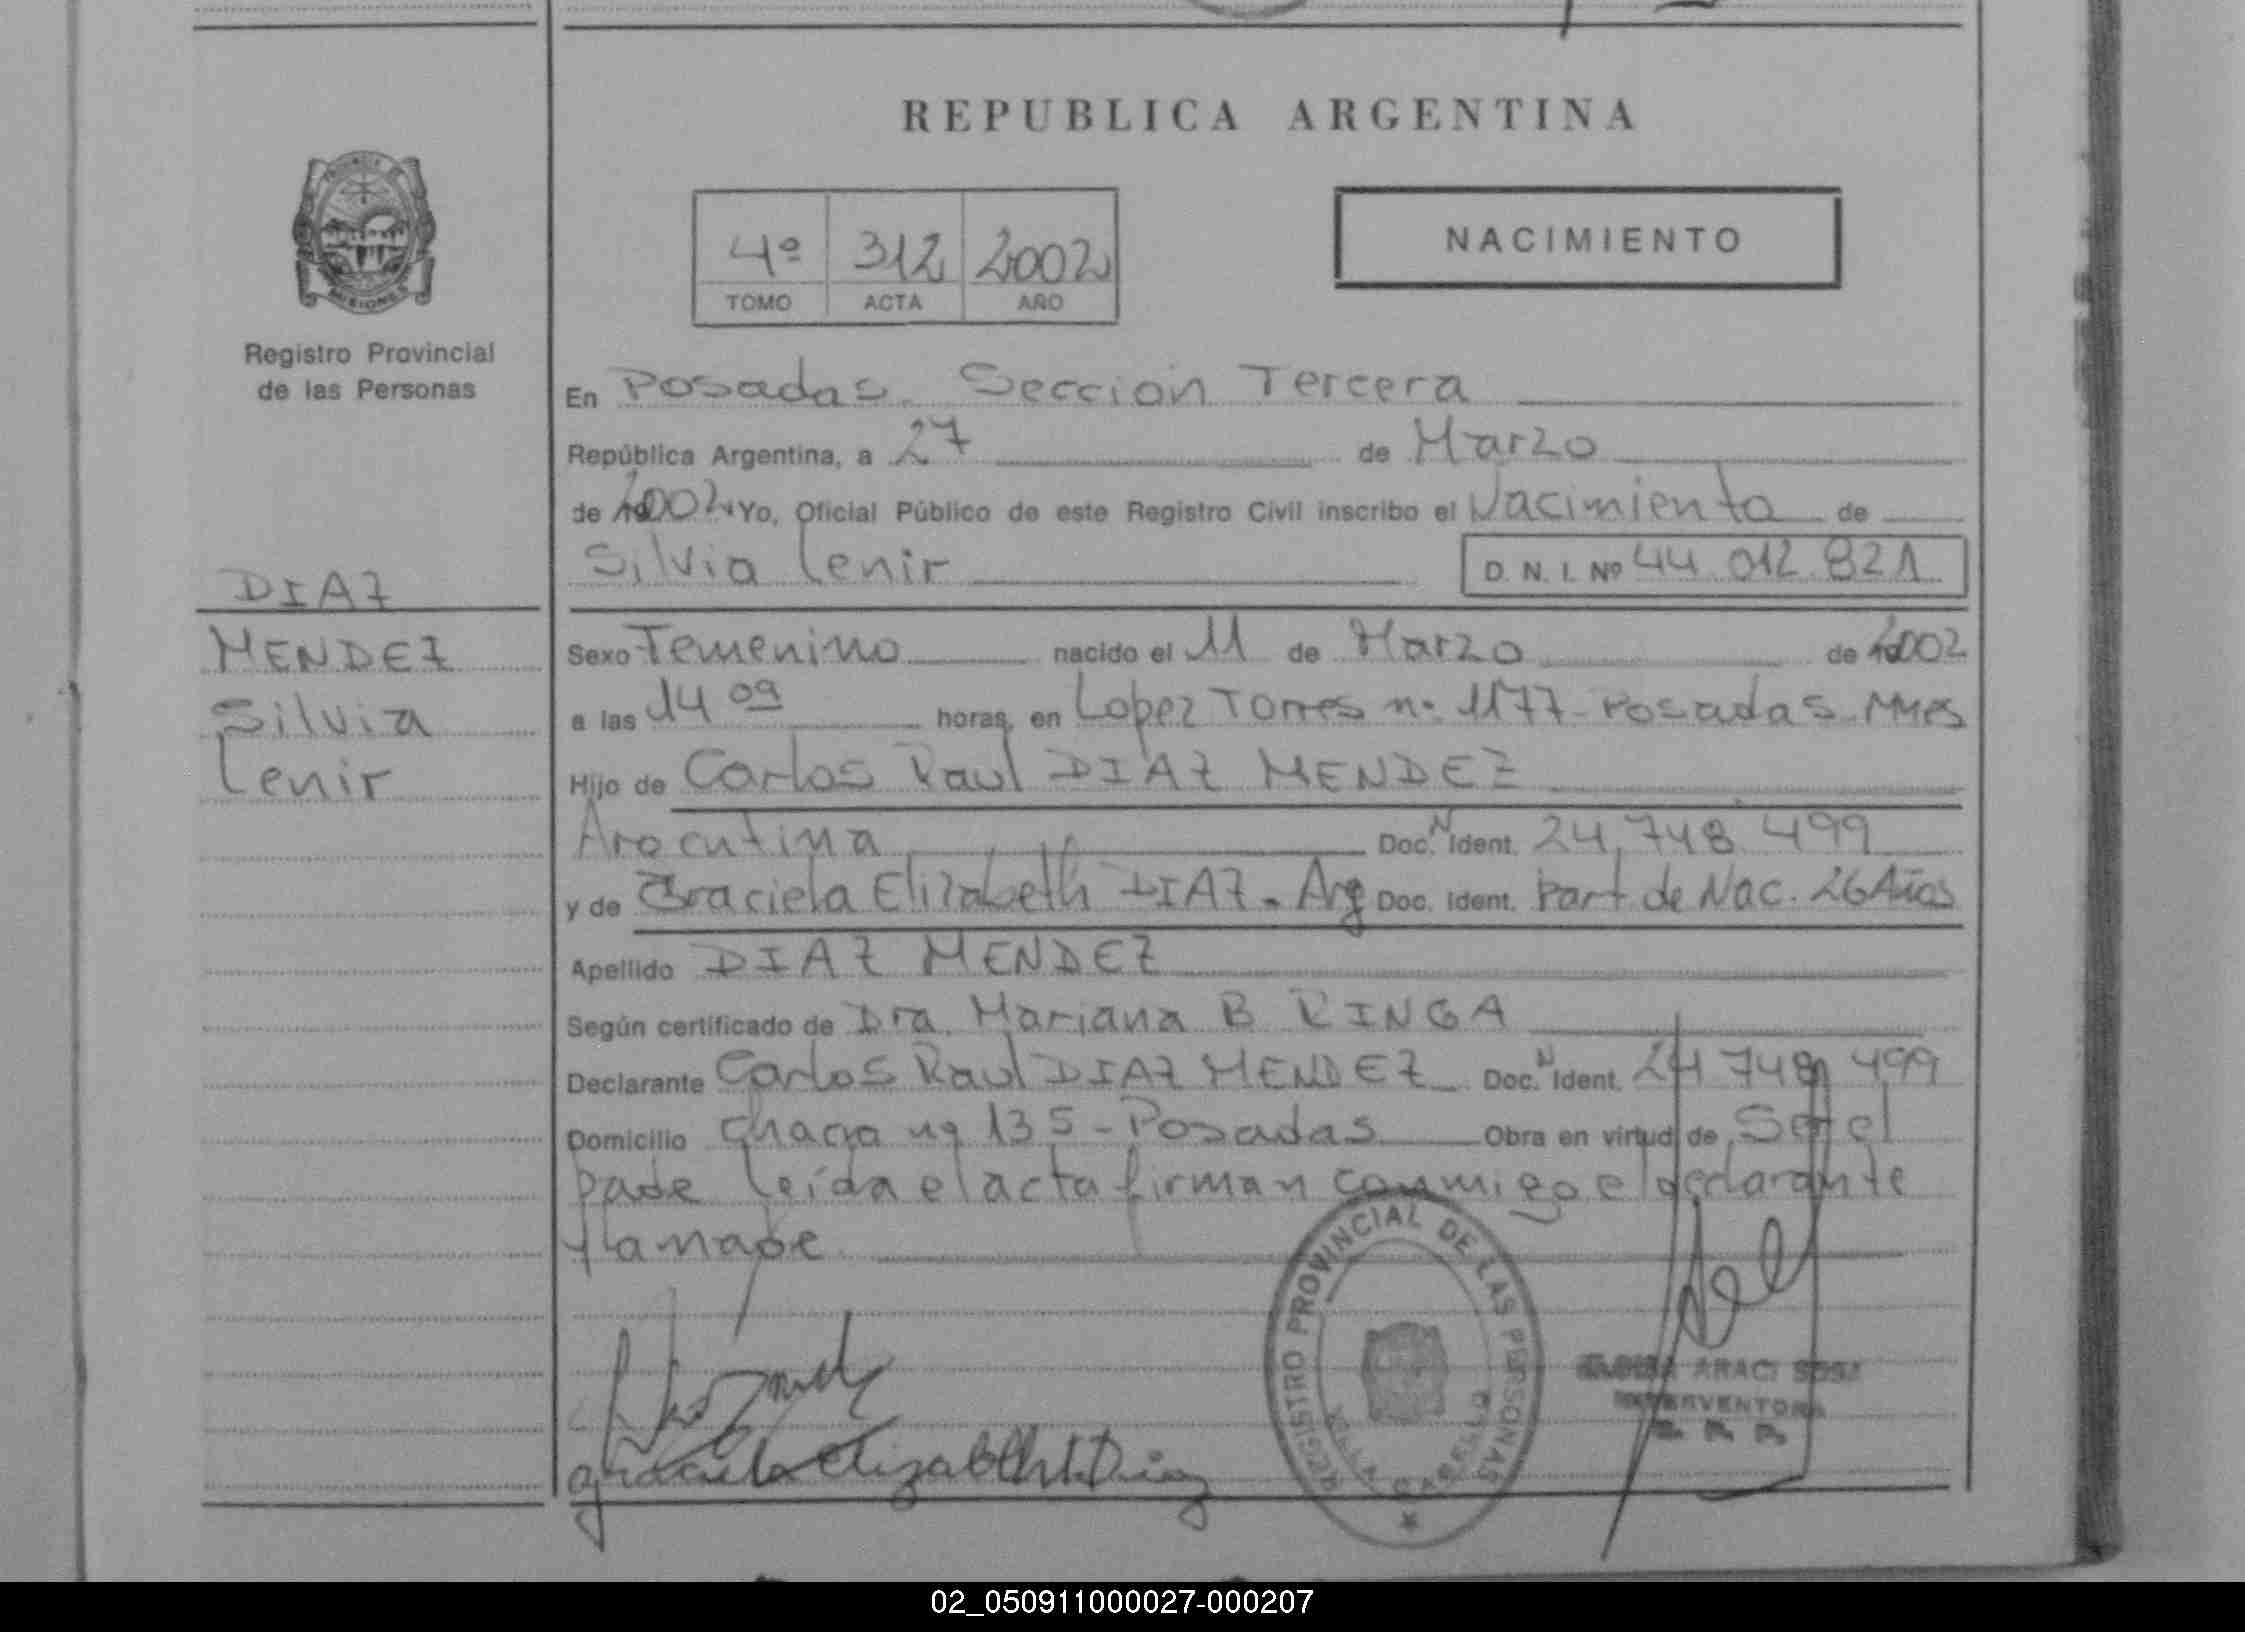 REPUBLICA ARGENTINA
NACIMIENTO
4º 312 2002
TOMO ACTA AÑO
MISIONES
Registro Provincial
de las Personas
DIAZ
MENDEZ
Silvia
Lenir
En Posadas. Sección Tercera
República Argentina, a 27 de Marzo
de 2002 Yo, Oficial Público de este Registro Civil inscribo el Nacimiento de
Silvia Lenir D. N. I. Nº 44.012.821
Sexo Femenino nacido el 11 de Marzo de 2002
a las 14 09 horas, en Lopez Torres nº 1177 - Posadas. Mnes
Hijo de Carlos Raul DIAZ MENDEZ
Argentina Doc. N Ident. 24.748.499
y de Graciela Elizabeth DIAZ. Arg Doc. Ident. Part de Nac. 26 Años
Apellido DIAZ MENDEZ
Según certificado de Dra. Mariana B RINGA
Declarante Carlos Raul DIAZ MENDEZ Doc. N Ident. 24 748 499
Domicilio Chacra nº 135 - Posadas Obra en virtud de Ser el
padre Leída el acta firman conmigo el declarante
y la madre
REGISTRO PROVINCIAL DE LAS PERSONAS
VILLA CABELLO
Graciela Elizabeth Diaz
ARACI SOSA
INTERVENTORA
02_050911000027-000207